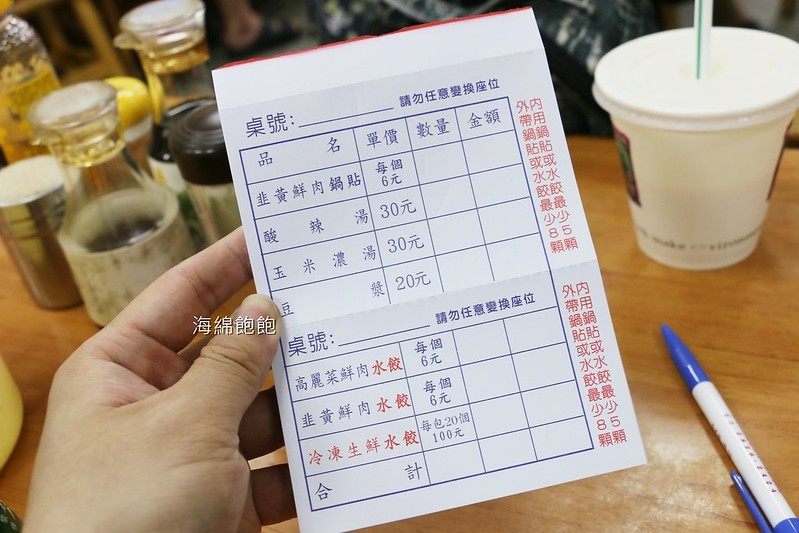 桌號: 請勿任意變換座位
品名 單價 數量 金額
韭黃鮮肉鍋貼 每個6元
酸辣湯 30元
玉米濃湯 30元
豆漿 20元
內用鍋貼或水餃最少5顆
外帶鍋貼或水餃最少8顆
桌號: 請勿任意變換座位
高麗菜鮮肉水餃 每個6元
韭黃鮮肉水餃 每個6元
冷凍生鮮水餃 每包20個100元
合計
內用鍋貼或水餃最少5顆
外帶鍋貼或水餃最少8顆
海綿飽飽
make